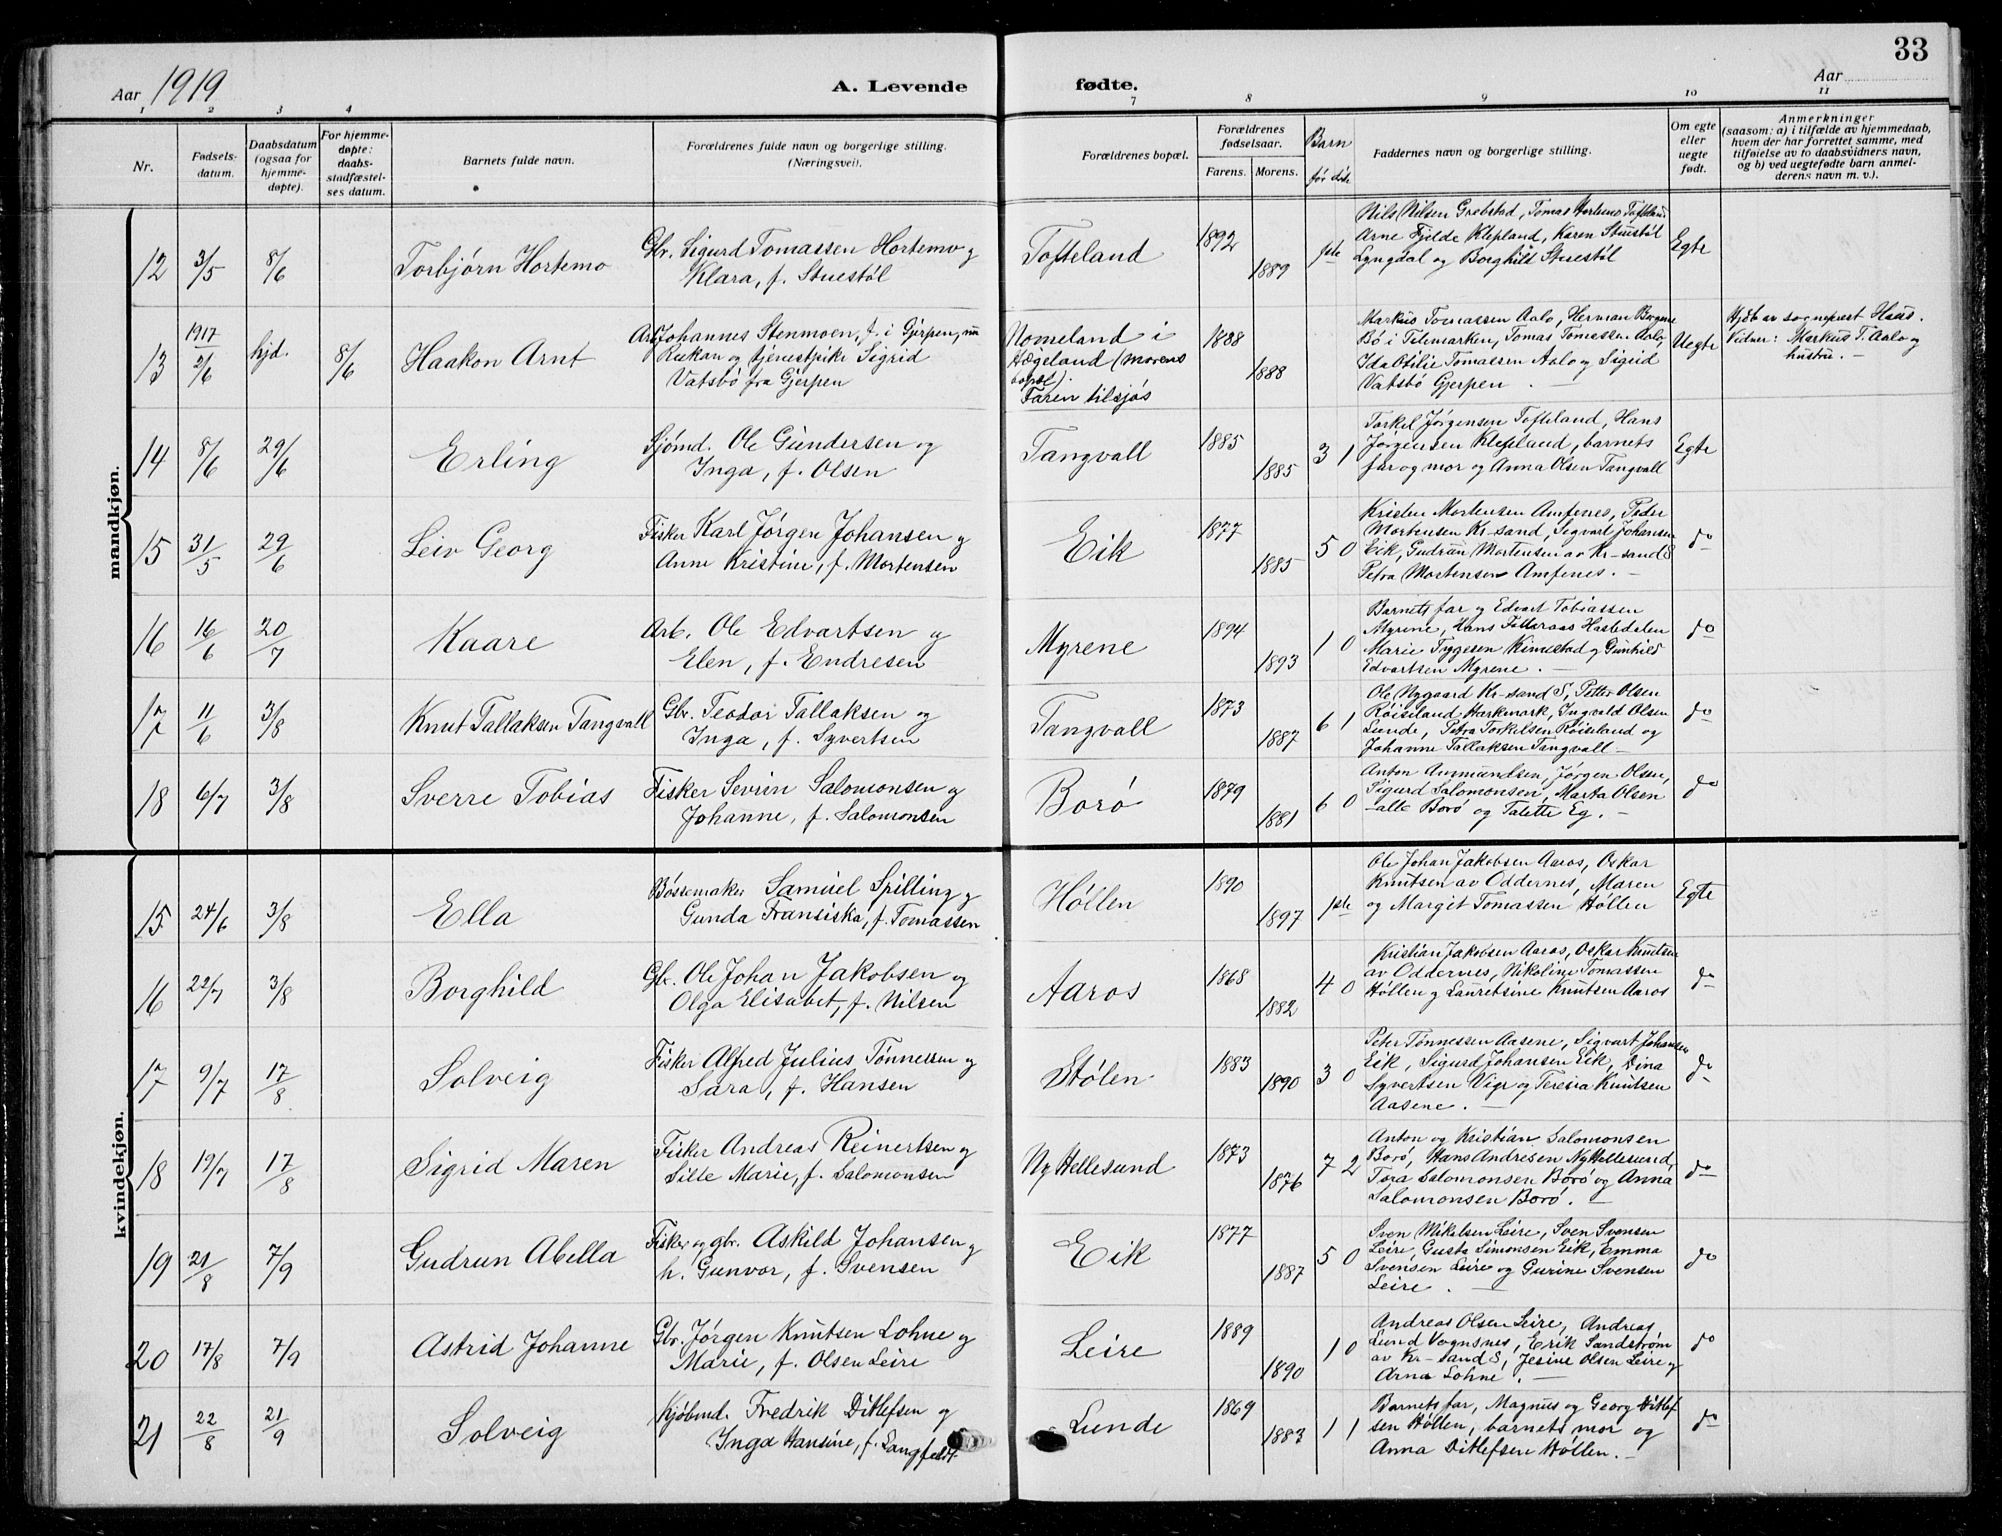 33
Aar 1919
A. Levende
fødte.
Aar
1 2 3 4 7 8 9 10 11
Nr.
Fødsels-
datum.
Daabsdatum
(ogsaa for
hjemme-
døpte).
For hjemme-
døpte:
daabs-
stadfæstel-
ses datum.
Barnets fulde navn.
Forældrenes fulde navn og borgerlige stilling.
(Næringsvei).
Forældrenes bopæl.
Forældrenes
fødselsaar.
Farens. Morens.
Barn
før dite
Faddernes navn og borgerlige stilling.
Om egte
eller
uegte
født.
Anmerkninger
(saasom: a) i tilfælde av hjemmedaab,
hvem der har forrettet samme, med
tilføielse av to daabsvidners navn,
og b) ved uegtefødte barn anmel-
derens navn m. v.).
mandkjøn.
12 3/5 8/6 Torbjørn Hortemo
Gbr. Sigurd Tomassen Hortemo og
Klara, f. Stuestøl
Tofteland
1892
1889
1ste
Nils Nilsen Grebstad, Tomas Hortemo Tofteland
Arne Fjelde Klepland, Karen Stuestøl
Lyngdal og Borghild Stuestøl
Egte
13 1917 2/6 hjd. 8/6 Haakon Arnt
Arb. Johannes Stenmoen, f. i Gjerpen, nu
Rjukan og tjenestpike Sigrid
Vatsbø fra Gjerpen
Nomeland i
Hægeland (morens
bopæl).
Faren tilsjøs
1888
1888
Markus Tomassen Aalo, Herman
Bø i Telemarken, Tomas Tomassen Aalo,
Ida Otilie Tomassen Aalo og Sigrid
Vatsbø Gjerpen. —
Uegte
Hjdt av sogneprest Haus.
Vidner: Markus T. Aalo og
hustru. —
14 8/6 29/6 Erling
Sjømd. Ole Gundersen og
Inga, f. Olsen
Tangvall
1885
1885
3 1
Torkel Jørgensen Tofteland, Hans
Jørgensen Klepland, barnets
far og mor og Anna Olsen Tangvall
Egte
15 31/5 29/6 Leiv Georg
Fisker Karl Jørgen Johansen og
Anne Kristine, f. Mortensen
Eik
1877
1885
5 0
Kristen Mortensen Amfenes, Peder
Mortensen Kr-sand, Segvart Johansen
Eik, Gudrun Mortensen av Kr-sand S
Petra Mortensen Amfenes. —
do
16 16/6 20/7 Kaare
Arb. Ole Edvartsen og
Elen, f. Endresen
Myrene
1894
1893
1 0
Barnets far og Edvart Tobiassen
Myrene, Hans Hastedalen
Marie Tygesen Kimestad og Gunhild
Edvartsen Myrene. —
do
17 11/6 3/8 Knut Tallaksen Tangvall
Gbr. Teodor Tallaksen og
Inga, f. Syvertsen
Tangvall
1873
1887
6 1
Ole Nygaard Kr-sand S, Petter Olsen
Røiseland Harkmark, Ingvald Olsen
Lunde, Petra Torkilsen Røiseland og
Johanne Tallaksen Tangvall —
do
18 6/7 3/8 Sverre Tobias
Fisker Sevrin Salomonsen og
Johanne, f. Salomonsen
Borø
1879
1881
6 0
Anton Aanmundsen, Jørgen Olsen,
Sigurd Salomonsen, Marta Olsen
- alle Borø og Talette Eg. —
do
kvindekjøn.
15 24/6 3/8 Ella
Bøssemaker Samuel Spilling og
Gunda Fransiska, f. Tomassen
Høllen
1890
1897
1ste
Ole Johan Jakobsen Aaros, Oskar
Knutsen av Oddernes, Maren
og Margit Tomassen Høllen
Egte
16 22/7 3/8 Borghild
Gbr. Ole Johan Jakobsen og
Olga Elisabet, f. Nilsen
Aaros
1868
1882
4 0
Kristian Jakobsen Aaros, Oskar Knutsen
av Oddernes, Nikoline Tomassen
Høllen og Lauretsine Knutsen Aaros
do
17 9/7 17/8 Solveig
Fisker Alfred Julius Tønnessen og
Sara, f. Hansen
Stølen
1883
1890
3 0
Peter Tønnessen Aasene, Sigvart Johansen
Eik, Sigurd Johansen Eik, Dina
Syvertsen Vige og Teresia Knutsen
Aasene. —
do
18 19/7 17/8 Sigrid Maren
Fisker Andreas Reinertsen og
Sille Marie, f. Salomonsen
Ny Hellesund
1873
1876
7 2
Anton og Kristian Salomonsen
Borø, Hans Andresen Ny Hellesund,
Tora Salomonsen Borø og Anna
Salomonsen Borø. —
do
19 21/8 7/9 Gudrun Abella
Fisker og gbr. Askild Johansen og
h. Gunvor, f. Svensen
Eik
1877
1887
5 0
Sven Mikelsen Leire, Sven Svensen
Leire, Gusta Simonsen Eik, Emma
Svensen Leire og Gurine Svensen
Leire. —
do
20 17/8 7/9 Astrid Johanne
Gbr. Jørgen Knutsen Lohne og
Marie, f. Olsen Leire
Leire
1889
1890
1 0
Andreas Olsen Leire, Andreas
Lund Vognsnes, Erik Sandstrøm
av Kr-sand S, Jesine Olsen Leire og
Arna Lohne. —
do
21 22/8 21/9 Solveig
Kjøbmd. Fredrik Ditlefsen og
Inga Hansine, f. Langfeldt
Lunde
1869
1883
1 1
Barnets far, Magnus og Georg Ditlef
sen Høllen, barnets mor og
Anna Ditlefsen Høllen. —
do